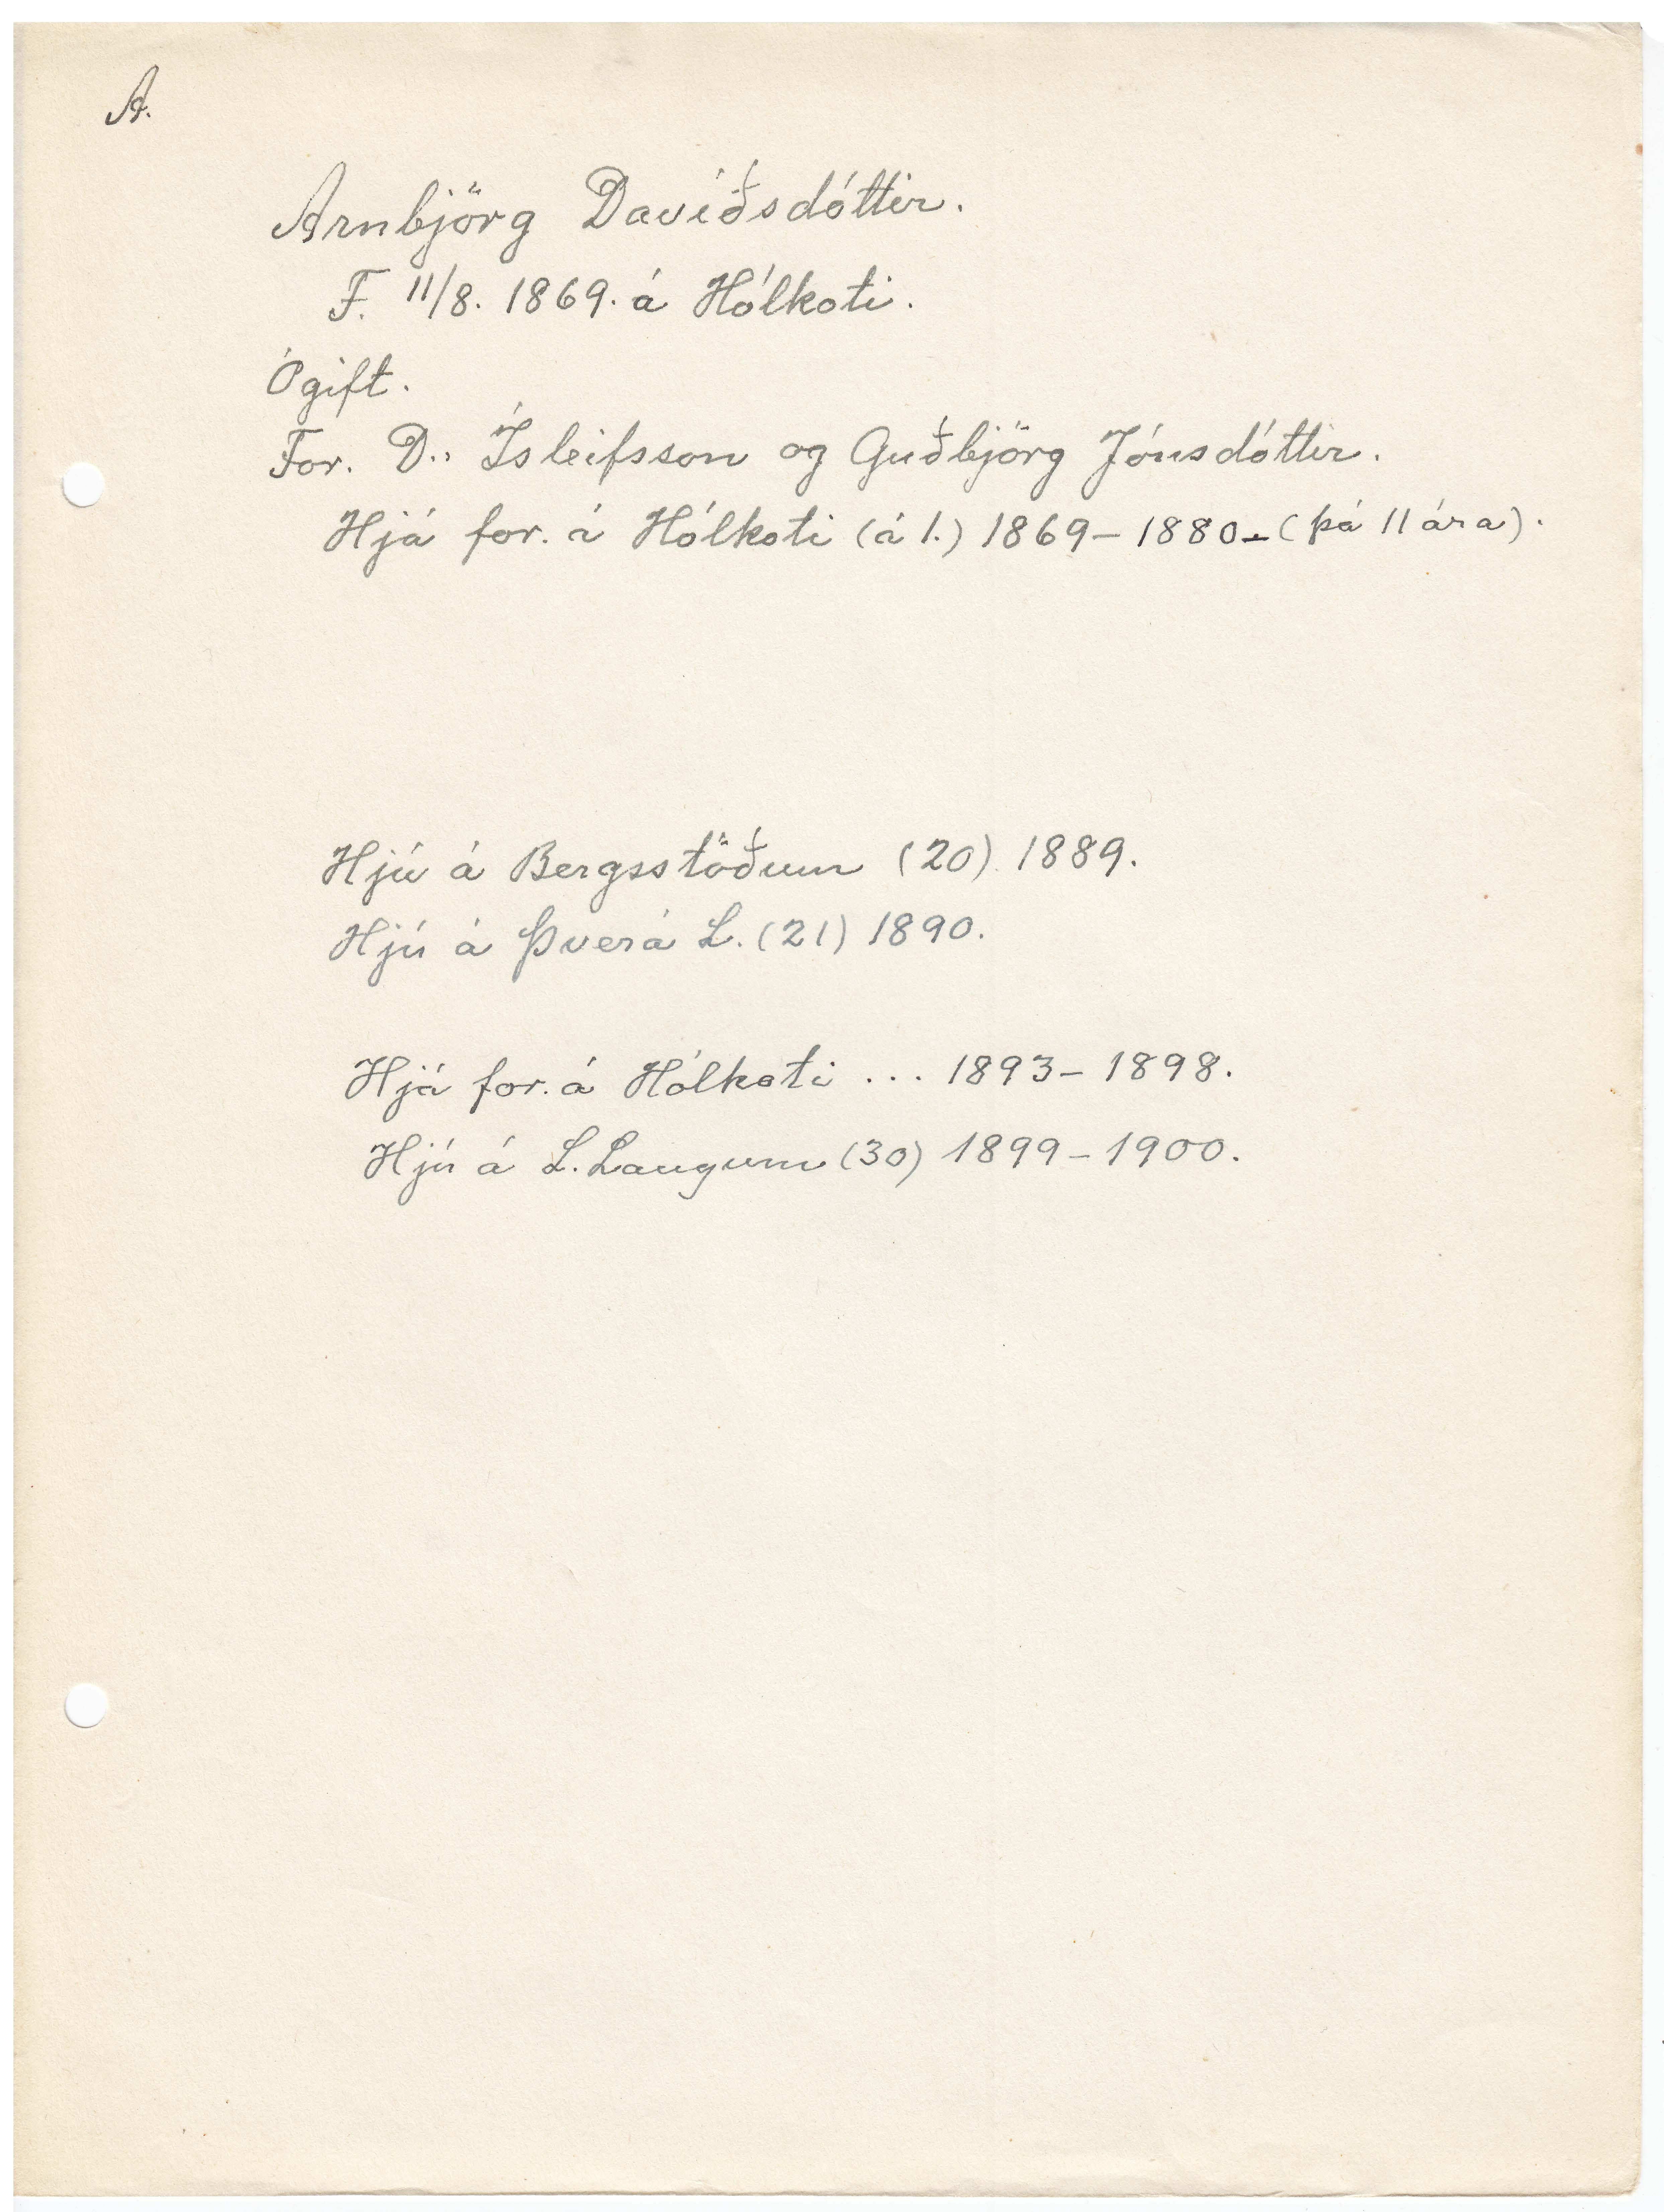 A.
Arnbjörg Davíðsdóttir.
F. 11/8. 1869. á Hólkoti.
Ógift.
For. D.. Ísleifsson og Guðbjörg Jónsdóttir.
Hjá for. á Hólkoti (á 1.) 1869 – 1880 – (þá 11 ára).
Hjú á Bergsstöðum (20) 1889.
Hjú á Þverá L. (21) 1890.
Hjá for. á Hólkoti ... 1893 – 1898.
Hjú á L. Laugum (30) 1899 – 1900.